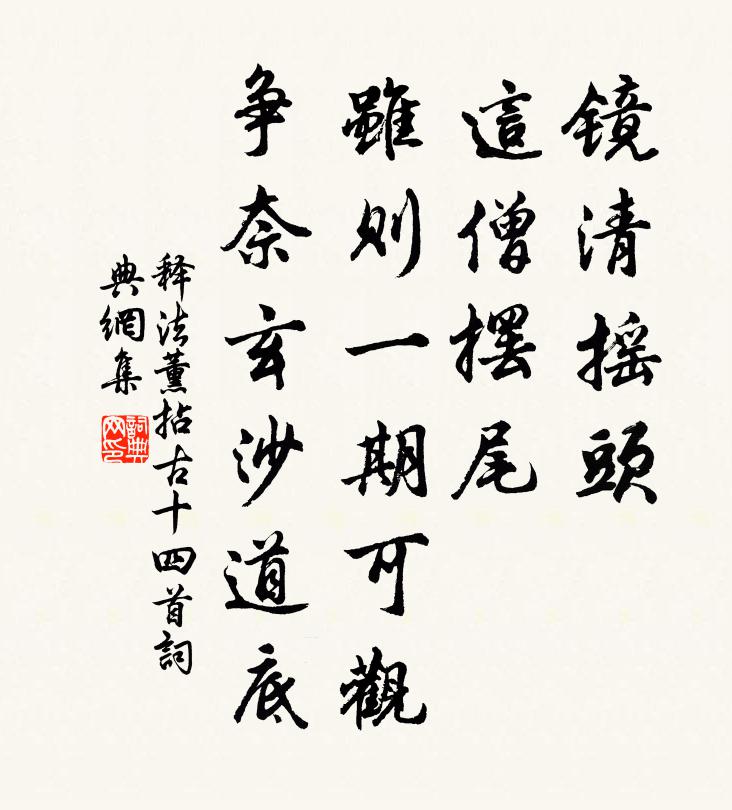 镜清摇頭
這僧擺尾
雖則一期可觀
争奈玄沙道底
释法薰拈古十四首詞
典網集
詞典網印